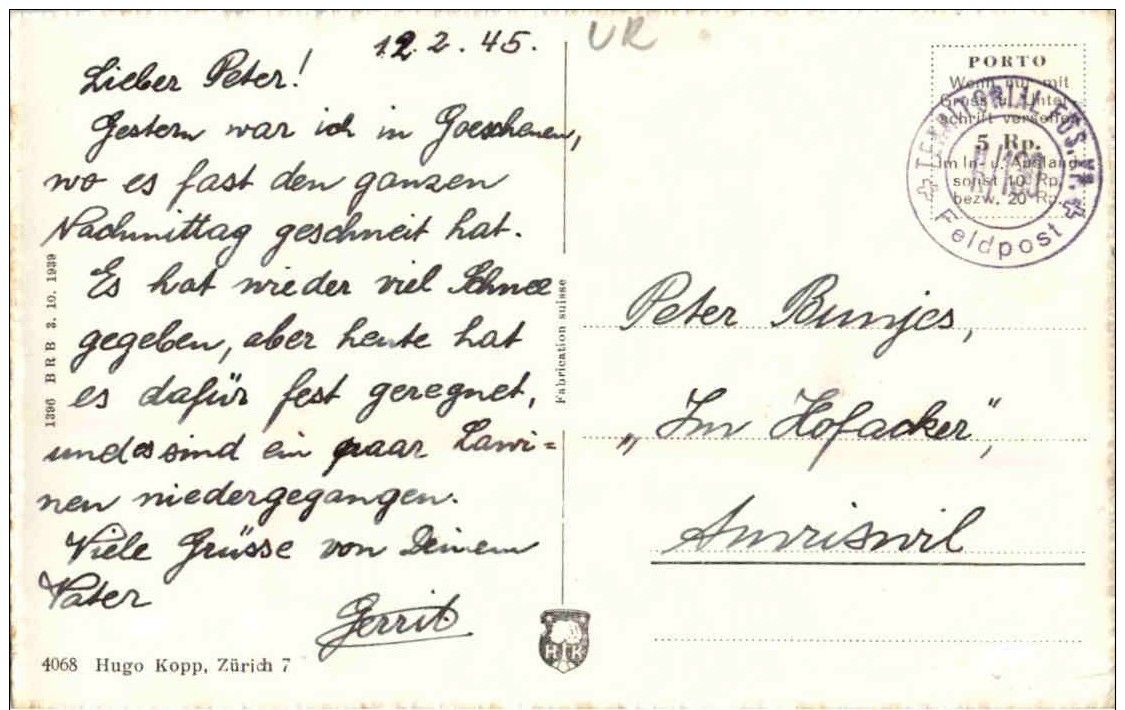 12.2.45.
UR
Lieber Peter!
Gestern war ich in Goeschenen,
wo es fast den ganzen
Nachmittag geschneit hat.
Es hat wieder viel Schnee
gegeben, aber heute hat
es dafür fest geregnet,
und es sind ein paar Lawi=
nen niedergegangen.
Viele Grüsse von Deinem
Vater
Gerrit
4068 Hugo Kopp, Zürich 7
1396 BRB 3. 10. 1939
Fabrication suisse
HK
PORTO
Wenn nur mit
Gruss u. Unter-
schrift versehen
5 Rp.
Im In- u. Ausland
sonst 10 Rp.
bezw. 20 Rp.
TERRITORIAL FÜS. Kp.
Feldpost
Peter Bunjes,
„Im Hofacker",
Amriswil